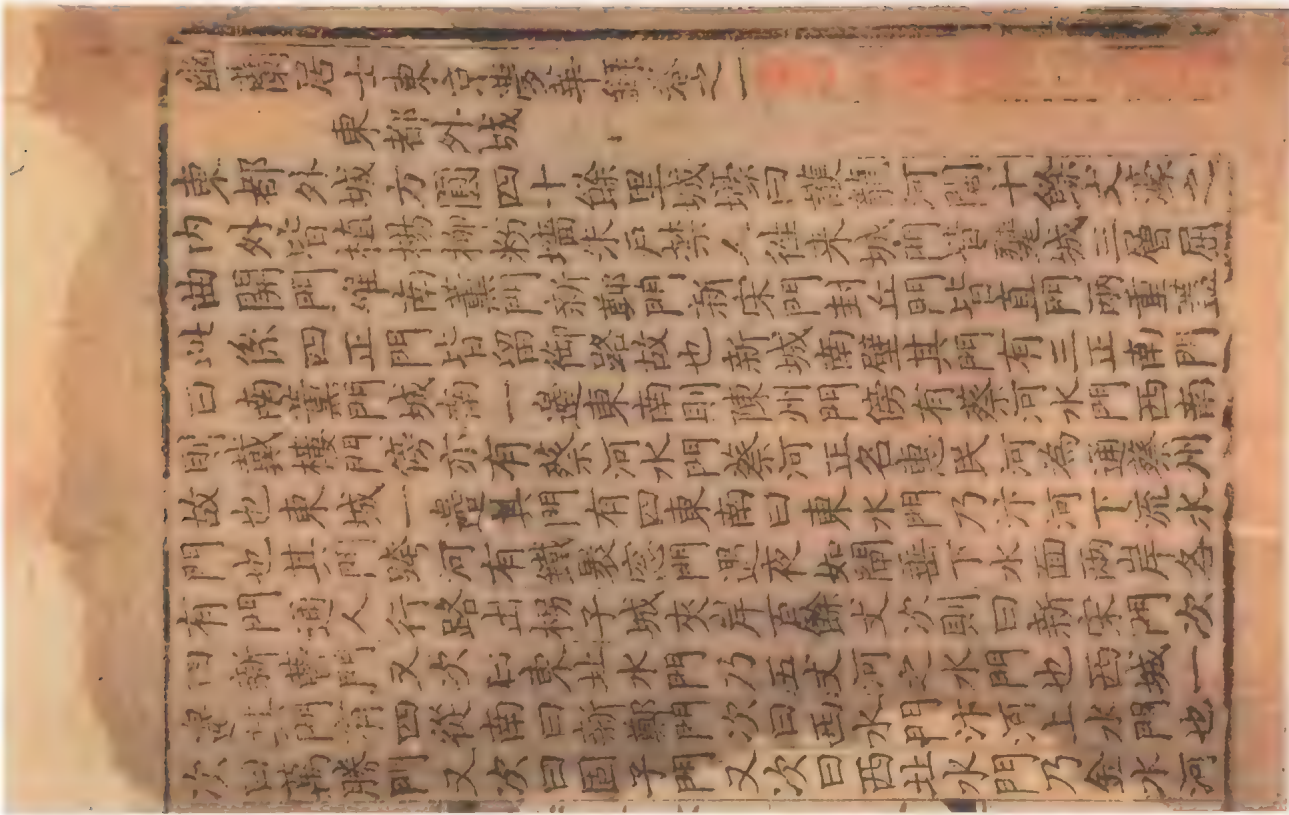 幽蘭居士東京夢華録卷之一
東都外城
東都外城方圓四十餘里城壕曰護龍河闊十餘丈濠之
内外皆植楊柳粉墻朱戸禁人往來城門皆甕城三層屈
曲開門唯南薰門新鄭門新宋門封丘門皆直門兩重蓋
此係四正門皆留御路故也新城南壁其門有三正南門
曰南薰門城南一邊東南則陳州門傍有蔡河水門西南
則戴樓門傍亦有蔡河水門蔡河正名惠民河為通蔡州
故也東城一邊其門有四東南曰東水門乃汴河下流水
門也其門跨河有鐵裹窓門遇夜如閘垂下水面兩岸各
有門通人行路出拐子城夾岸百餘丈次則曰新宋門次
曰新曹門又次曰東北水門乃五丈河之水門也西城一
邊其門有四從南曰新鄭門次曰西水門汴河上水門也
次曰萬勝門又次曰固子門又次曰西北水門乃金水河